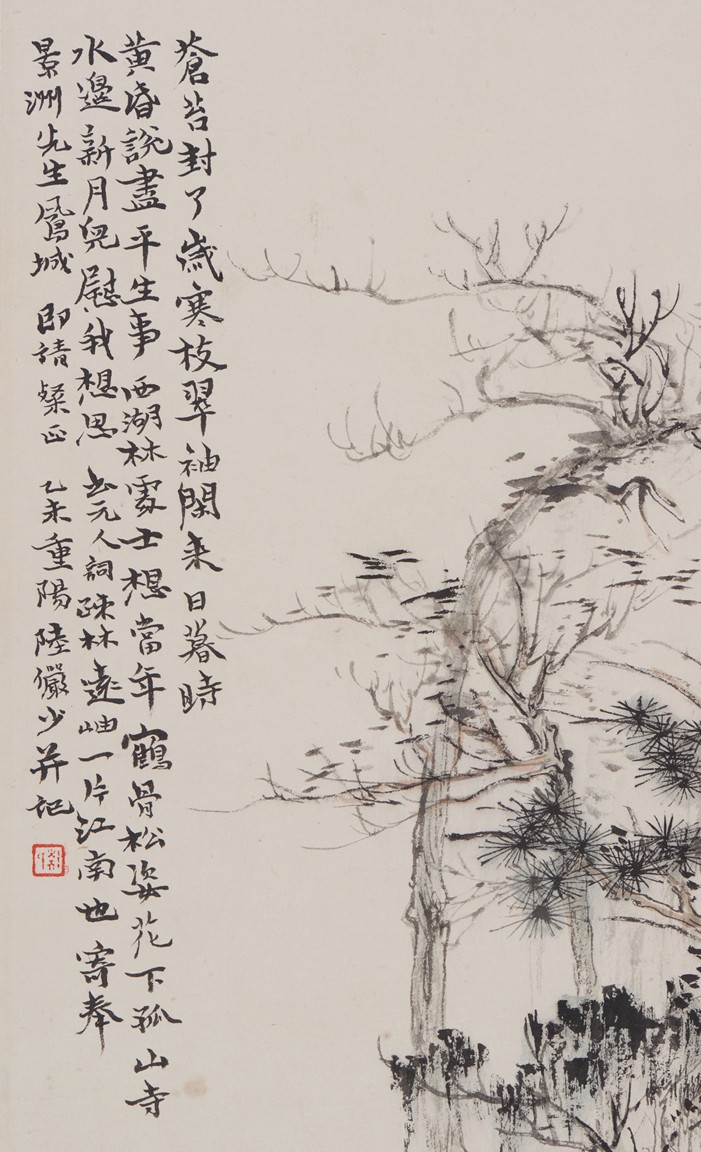 蒼苔封了歲寒枝翠袖閒来日暮時
黄昏說盡平生事西湖林處士想當年鶴骨松姿花下孤山寺
水邊新月兒慰我想思書元人詞疎林遠岫一片江南也寄奉
景洲先生鳳城即請粲正乙未重陽陸儼少并記